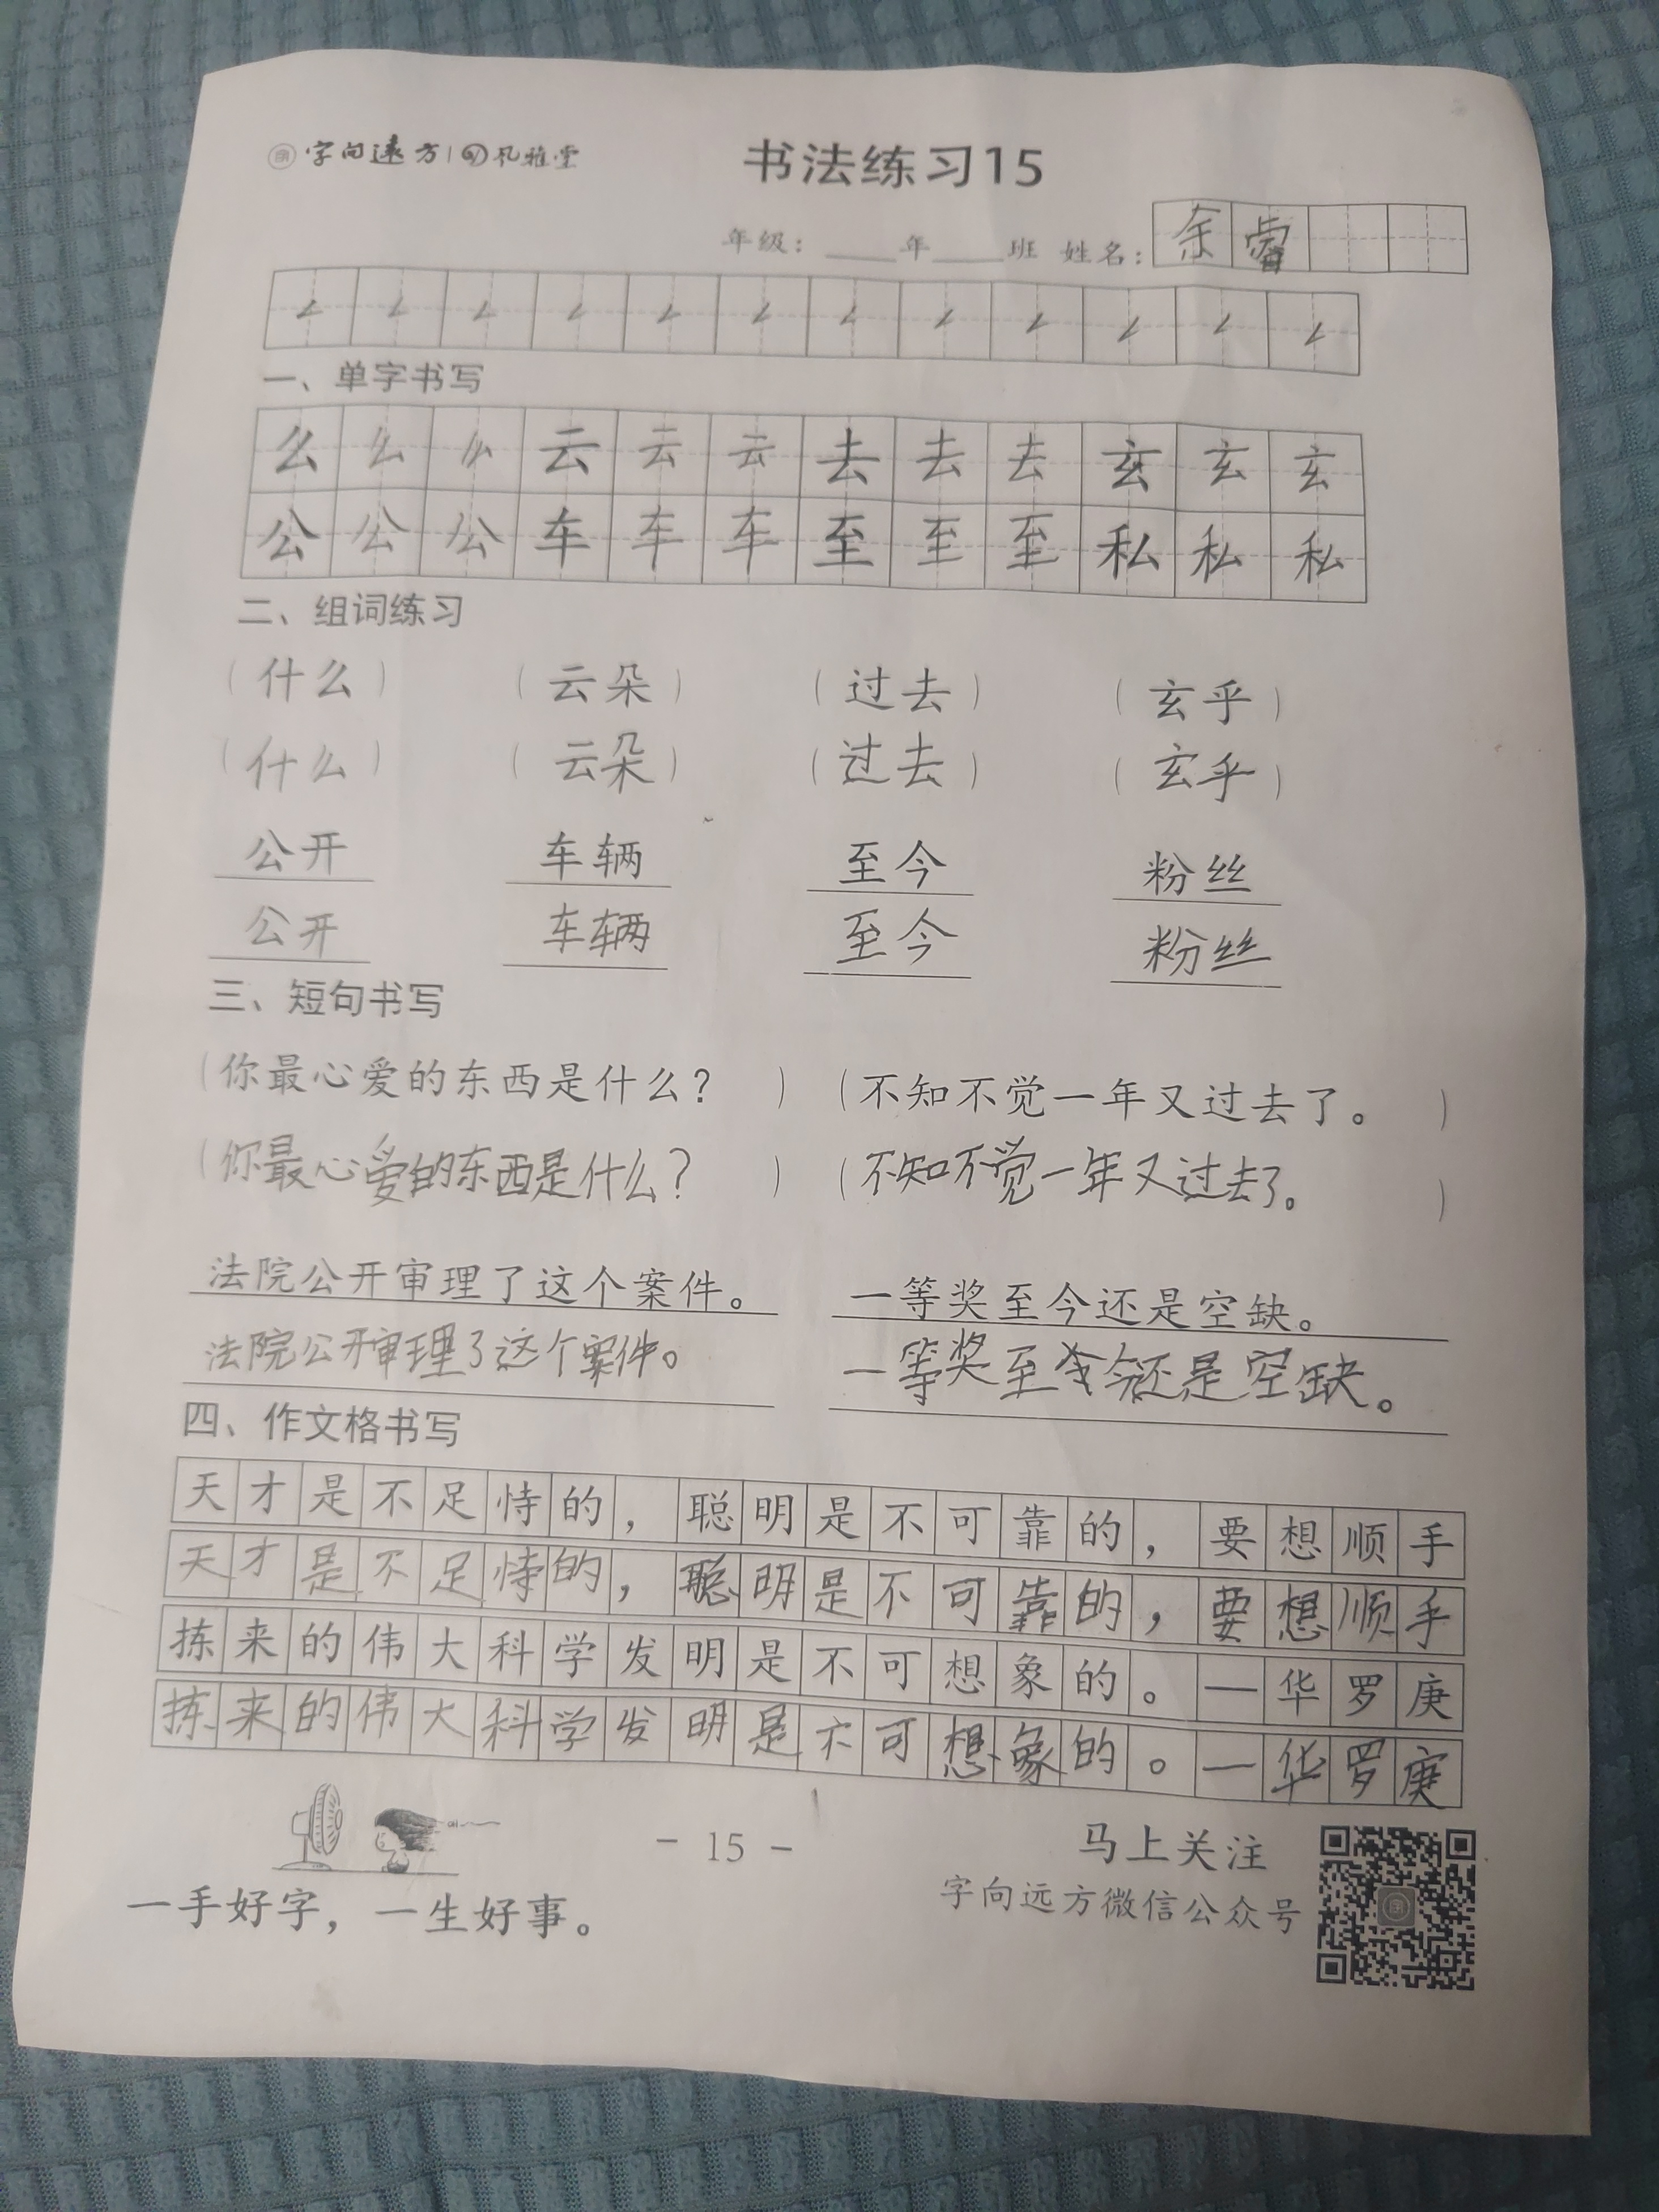 字向远方 | 孔雅堂
书法练习15
年级：____年____班 姓名：余睿
一、单字书写
么么么云云云去去去玄玄玄
公公公车车车至至至私私私
二、组词练习
（什么） （云朵） （过去） （玄乎）
（什么） （云朵） （过去） （玄乎）
公开 车辆 至今 粉丝
公开 车辆 至今 粉丝
三、短句书写
（你最心爱的东西是什么？ ） （不知不觉一年又过去了。 ）
（你最心爱的东西是什么？ ） （不知不觉一年又过去了。 ）
法院公开审理了这个案件。 一等奖至今还是空缺。
法院公开审理了这个案件。 一等奖至今还是空缺。
四、作文格书写
天才是不足恃的，聪明是不可靠的，要想顺手
天才是不足恃的，聪明是不可靠的，要想顺手
拣来的伟大科学发明是不可想象的。—华罗庚
拣来的伟大科学发明是不可想象的。—华罗庚
- 15 -
马上关注
字向远方微信公众号
一手好字，一生好事。